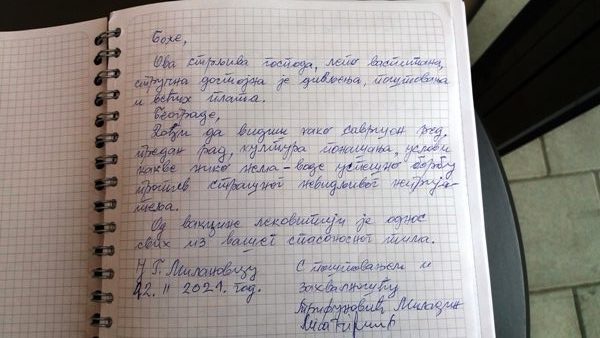 Боже,
Ова стрпљива господа, лепо васпитана,
стручна достојна је дивљења, поштовања
и већих плата.
Београде,
Дођи да видиш како савршен ред,
предан рад, култура понашања, услови
какве нико нема - воде успешну борбу
против страшног невидљивог неприја-
теља.
Од вакцине лековитији је однос
свих из вашег спасоносног тима.
У Г. Милановцу
22. II 2021. год.
С поштовањем и
захвалношћу
Трифуновић Миладин